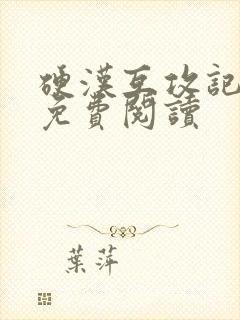 硬漢互攻記
免費閱讀
葉萍